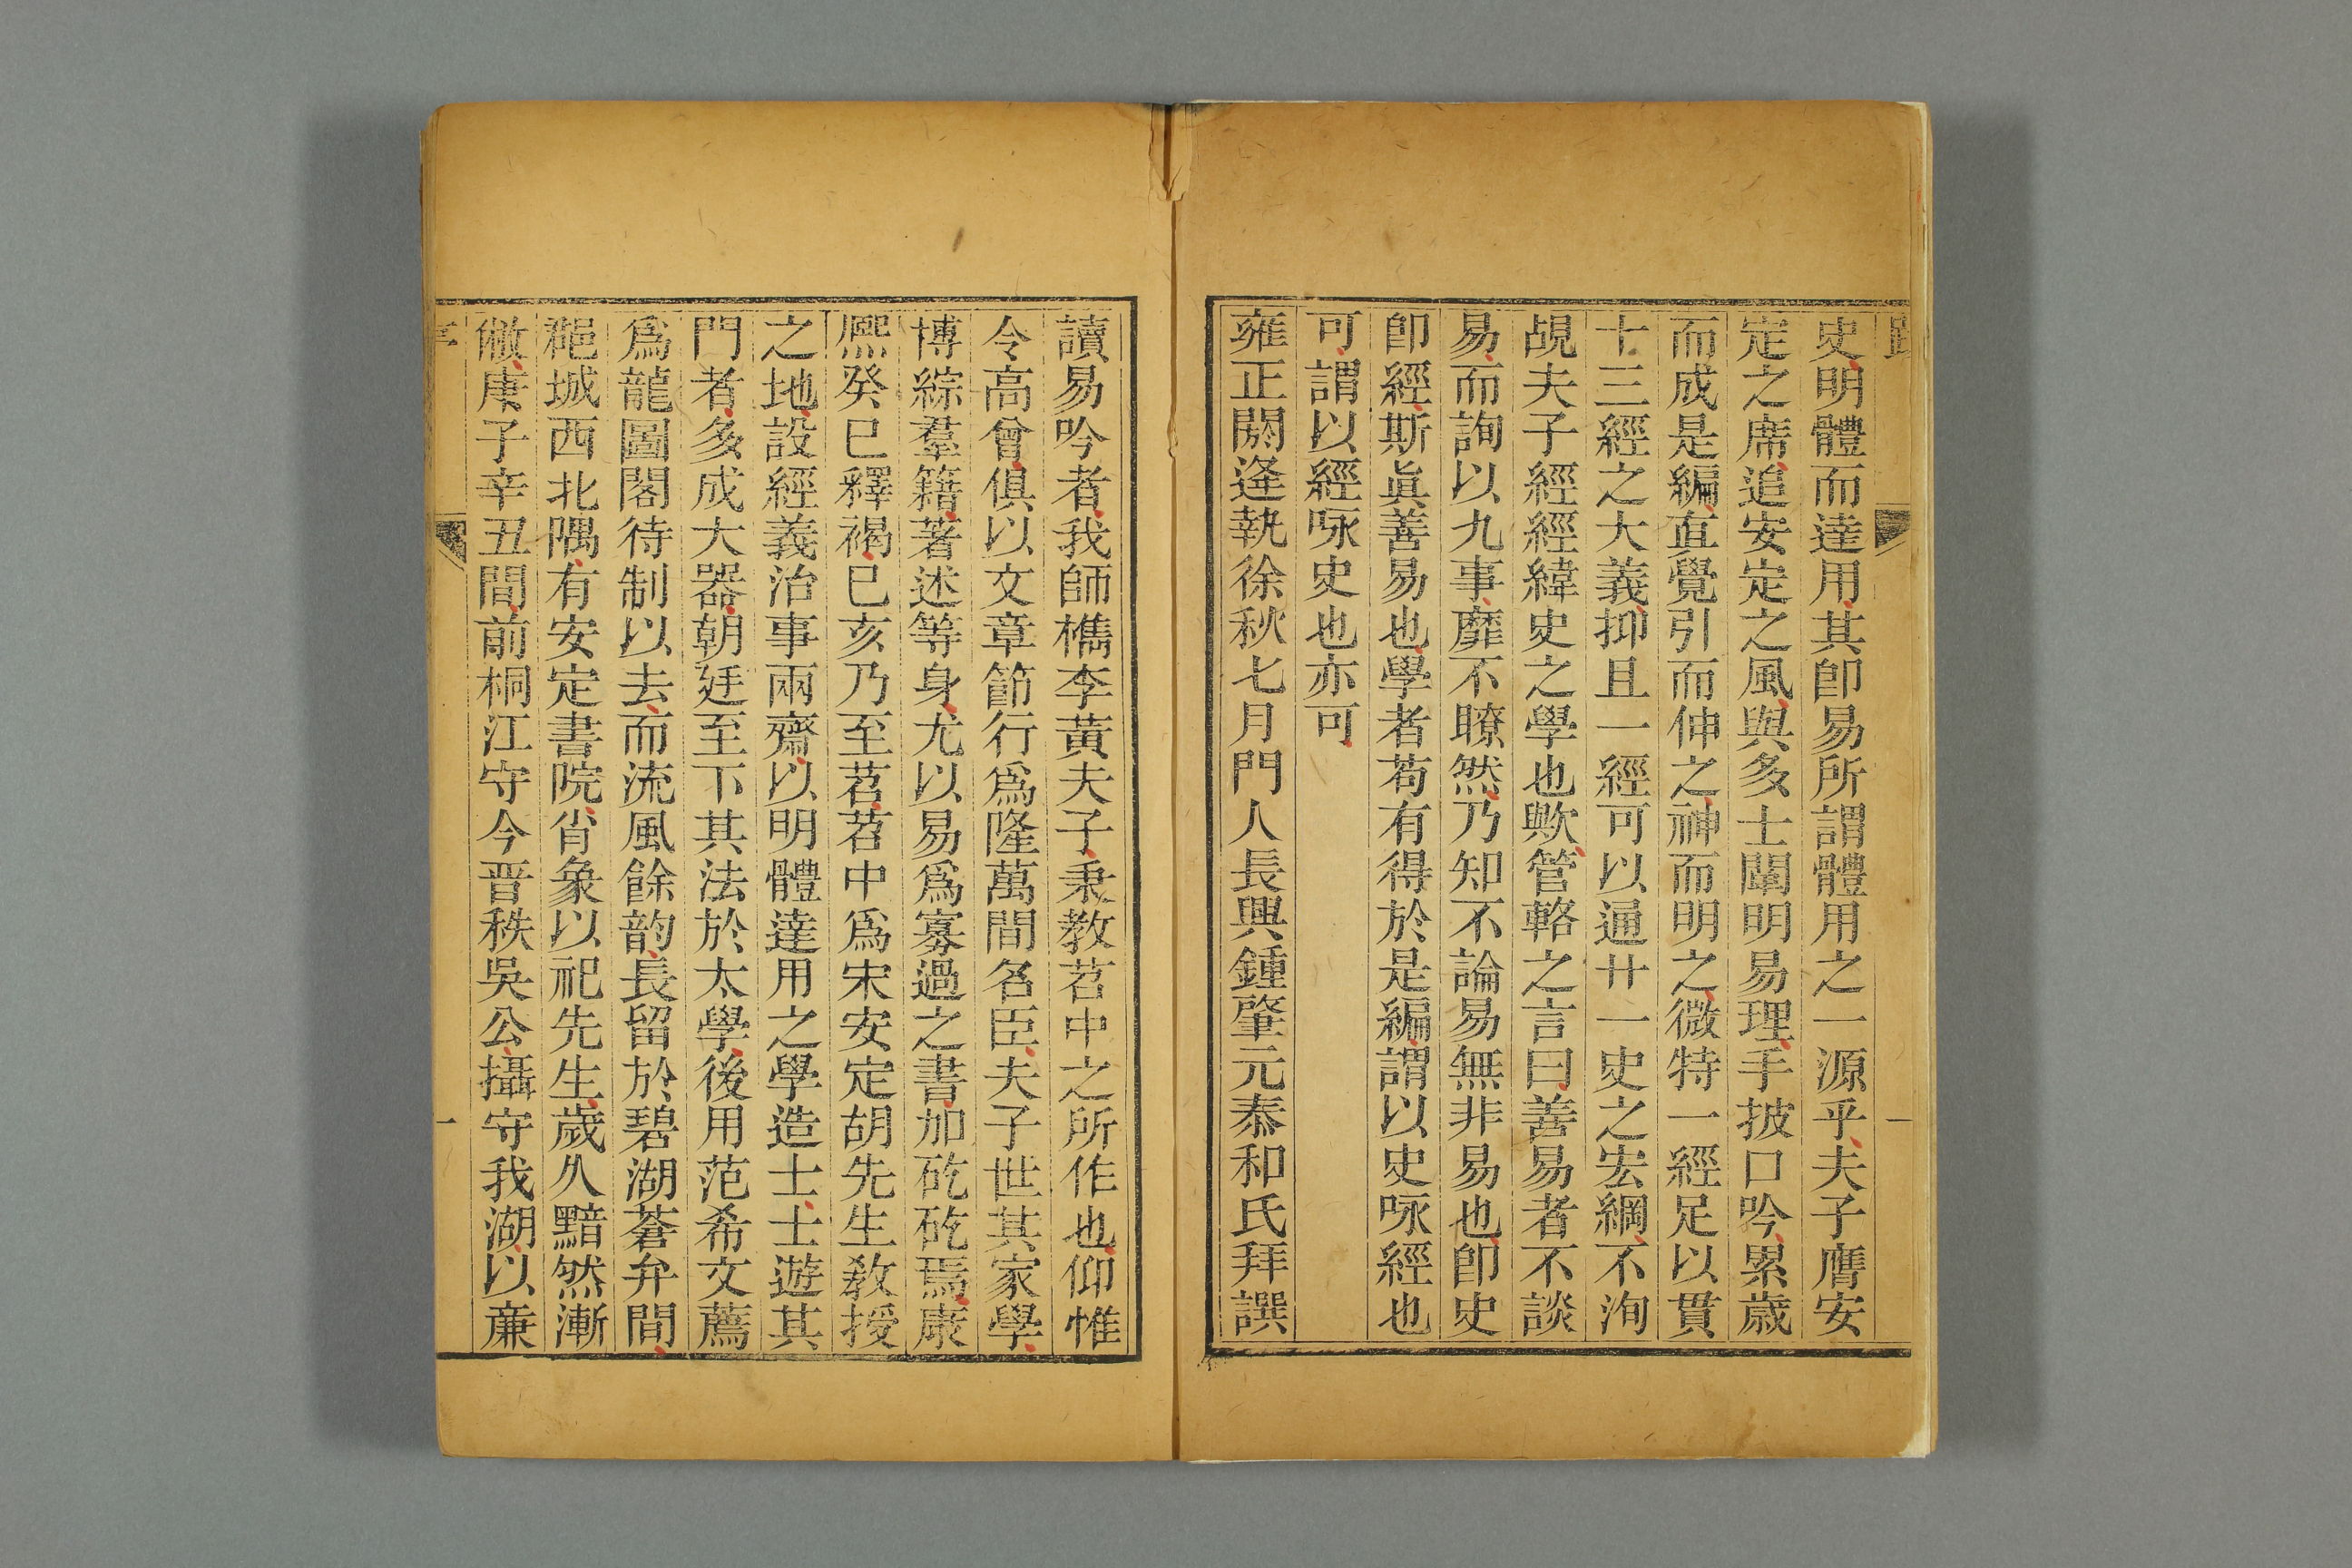 史明體而達用其卽易所謂體用之一源乎夫子膺安
定之席追安定之風與多士闡明易理手披口吟累歲
而成是編直覺引而伸之神而明之微特一經足以貫
十三經之大義抑且一經可以通廿一史之宏綱不洵
覘夫子經經緯史之學也歟管輅之言曰善易者不談
易而詢以九事靡不瞭然乃知不論易無非易也卽史
卽經斯眞善易也學者苟有得於是編謂以史咏經也
可謂以經咏史也亦可
雍正閼逢執徐秋七月門人長興鍾肇元泰和氏拜譔
一
讀易吟者我師檇李黃夫子秉教苕中之所作也仰惟
令高曾俱以文章節行爲隆萬間名臣夫子世其家學
博綜羣籍著述等身尤以易爲寡過之書加矻矻焉康
熙癸巳釋褐已亥乃至苕苕中爲宋安定胡先生敎授
之地設經義治事兩齋以明體達用之學造士士遊其
門者多成大器朝廷至下其法於太學後用范希文薦
爲龍圖閣待制以去而流風餘韵長留於碧湖蒼弁間
郡城西北隅有安定書院肖象以祀先生歲久黯然漸
敝庚子辛丑間前桐江守今晋秩吳公攝守我湖以亷
一